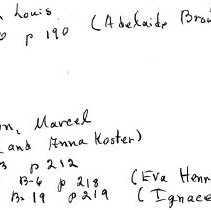 Louis (Adelaide Brou
p 190
n, Marcel
(and Anna Koster)
3 p 212
B-6 p 218 (Eva Henr
B-19 p 219 (Ignace